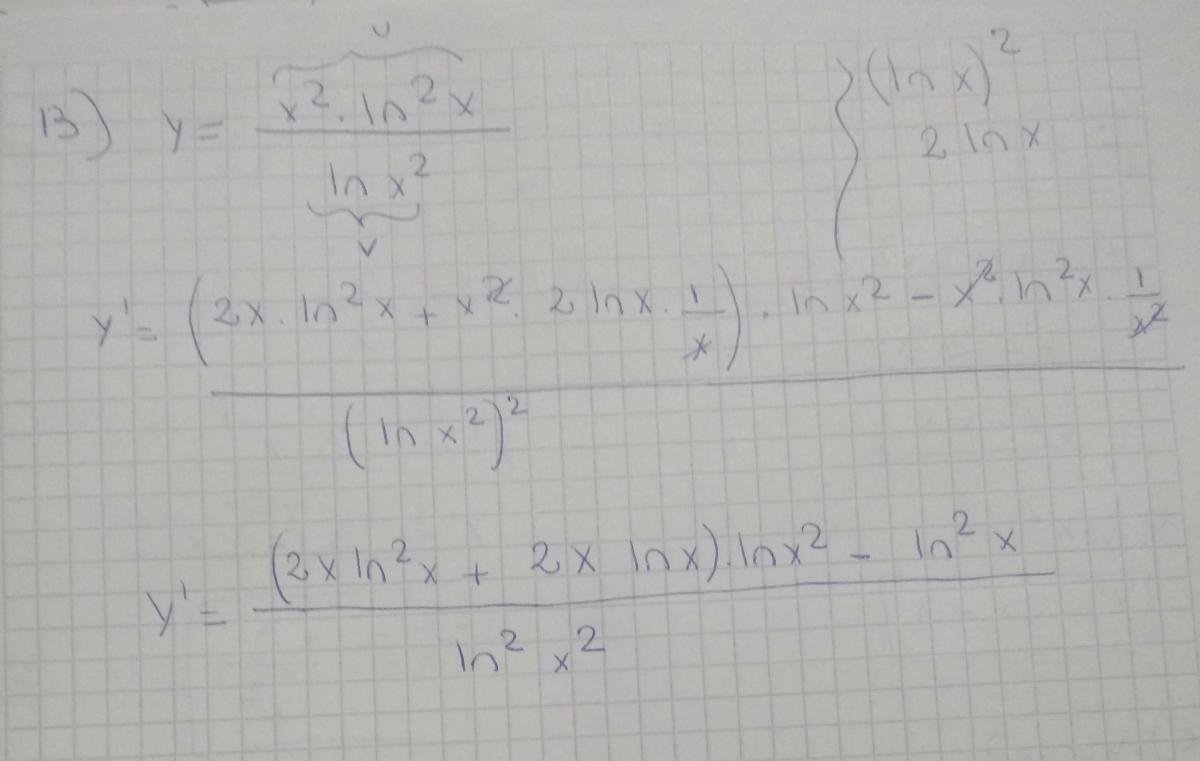 13) y = (x² · ln² x) / (ln x²)
u
v
(ln x)²
2 ln x
y' = ((2x · ln² x + x² · 2 ln x · 1/x) · ln x² − x² · ln² x · 1/x²) / (ln x²)²
y' = ((2x ln² x + 2x ln x) · ln x² − ln² x) / (ln² x²)